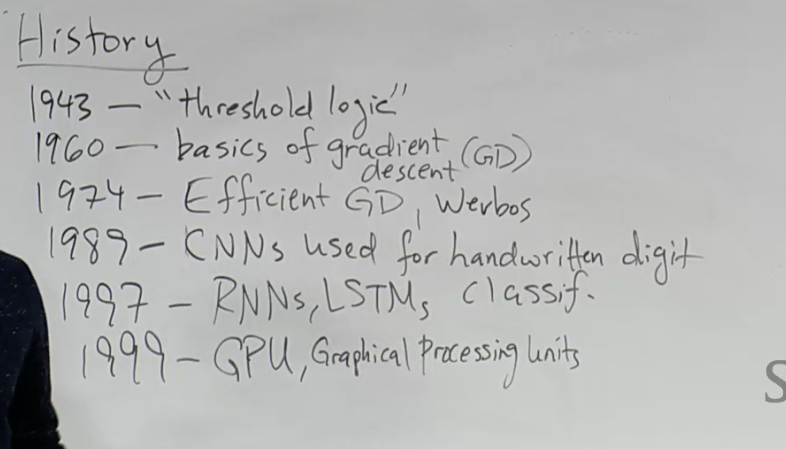 History
1943 — "threshold logic"
1960 — basics of gradient descent (GD)
1974 – Efficient GD, Werbos
1989 – CNNs used for handwritten digit
classif.
1997 – RNNs, LSTMs
1999 – GPU, Graphical Processing Units
S